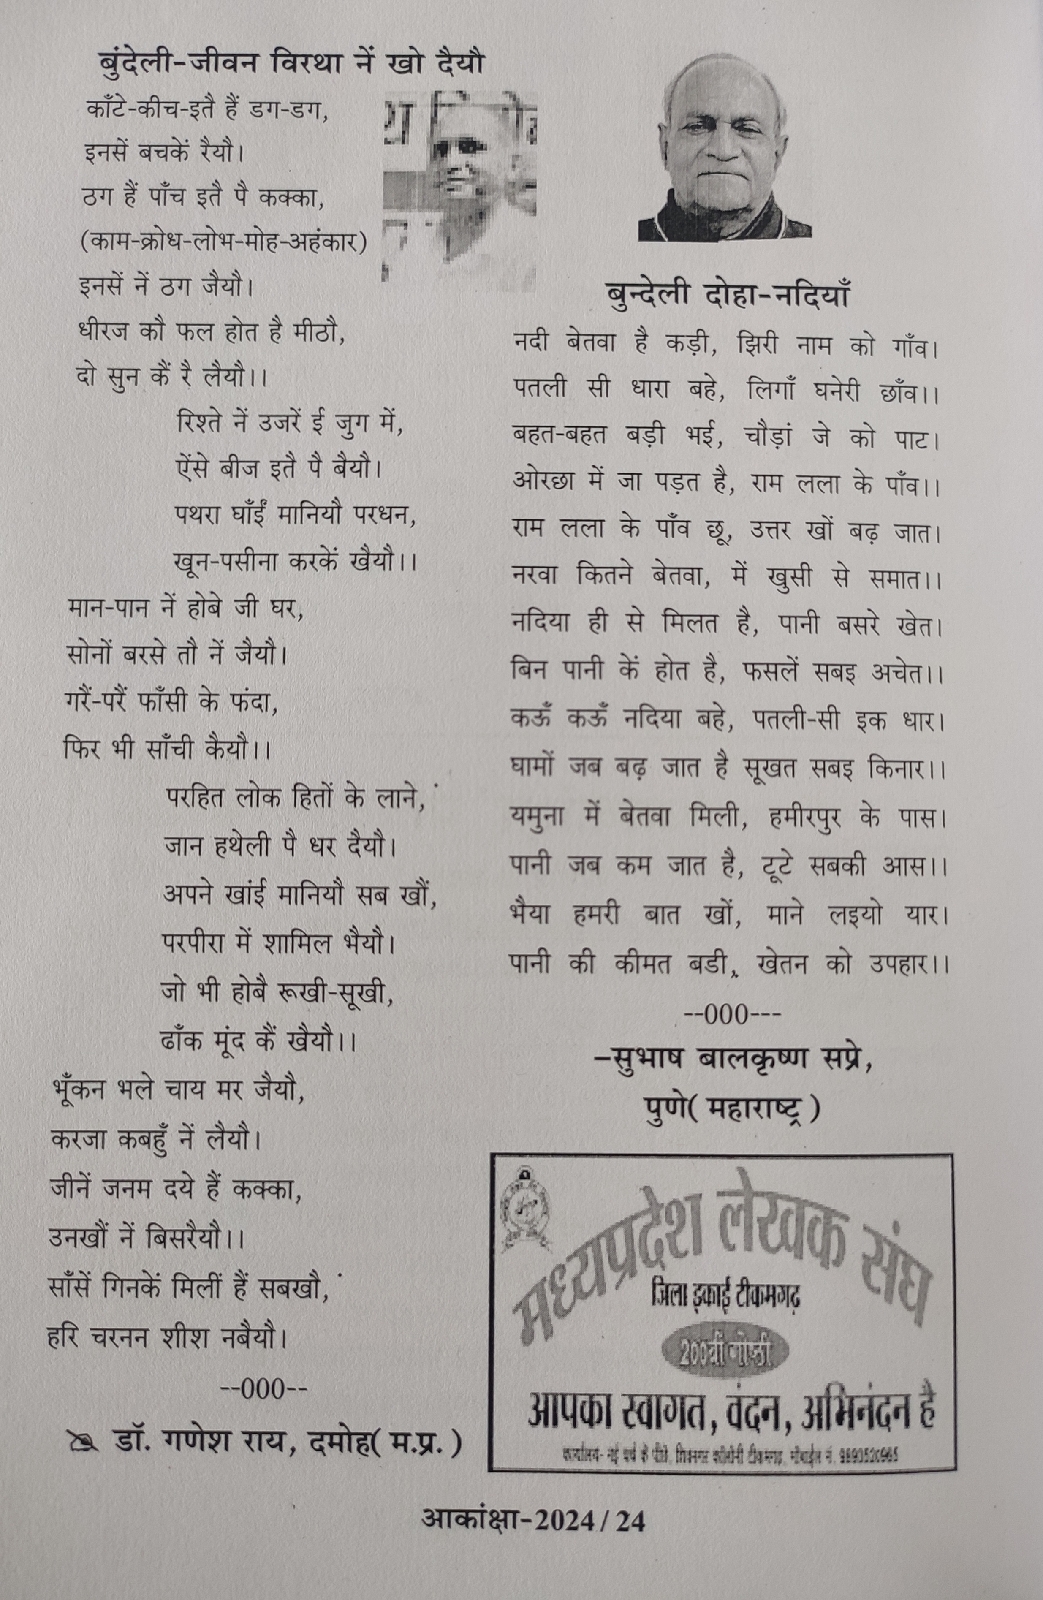 बुंदेली-जीवन विरथा नें खो दैयौ
काँटे-कीच-इतै हैं डग-डग,
इनसें बचकें रैयौ।
ठग हैं पाँच इतै पै कक्का,
(काम-क्रोध-लोभ-मोह-अहंकार)
इनसें नें ठग जैयौ।
धीरज कौ फल होत है मीठौ,
दो सुन कैं रै लैयौ।।
रिश्ते नें उजरें ई जुग में,
ऐंसे बीज इतै पै बैयौ।
पथरा घाँईं मानियौ परधन,
खून-पसीना करकें खैयौ।।
मान-पान नें होबे जी घर,
सोनों बरसे तौ नें जैयौ।
गरैं-परैं फाँसी के फंदा,
फिर भी साँची कैयौ।।
परहित लोक हितों के लाने,
जान हथेली पै धर दैयौ।
अपने खांई मानियौ सब खौं,
परपीरा में शामिल भैयौ।
जो भी होबै रूखी-सूखी,
ढाँक मूंद कैं खैयौ।।
भूँकन भले चाय मर जैयौ,
करजा कबहुँ नें लैयौ।
जीनें जनम दये हैं कक्का,
उनखौं नें बिसरैयौ।।
साँसें गिनकें मिलीं हैं सबखौ,
हरि चरनन शीश नबैयौ।
--000--
डॉ. गणेश राय, दमोह( म.प्र. )
बुन्देली दोहा-नदियाँ
नदी बेतवा है कड़ी, झिरी नाम को गाँव।
पतली सी धारा बहे, लिगाँ घनेरी छाँव।।
बहत-बहत बड़ी भई, चौड़ां जे को पाट।
ओरछा में जा पड़त है, राम लला के पाँव।।
राम लला के पाँव छू, उत्तर खों बढ़ जात।
नरवा कितने बेतवा, में खुसी से समात।।
नदिया ही से मिलत है, पानी बसरे खेत।
बिन पानी कें होत है, फसलें सबइ अचेत।।
कऊँ कऊँ नदिया बहे, पतली-सी इक धार।
घामों जब बढ़ जात है सूखत सबइ किनार।।
यमुना में बेतवा मिली, हमीरपुर के पास।
पानी जब कम जात है, टूटे सबकी आस।।
भैया हमरी बात खों, माने लइयो यार।
पानी की कीमत बडी, खेतन को उपहार।।
--000---
–सुभाष बालकृष्ण सप्रे,
पुणे( महाराष्ट्र )
मध्यप्रदेश लेखक संघ
जिला इकाई टीकमगढ़
200वीं गोष्ठी
आपका स्वागत, वंदन, अभिनंदन है
कार्यालय- नई चर्च के पीछे, शिवनगर कॉलोनी टीकमगढ़, मोबाईल नं.
आकांक्षा-2024/24